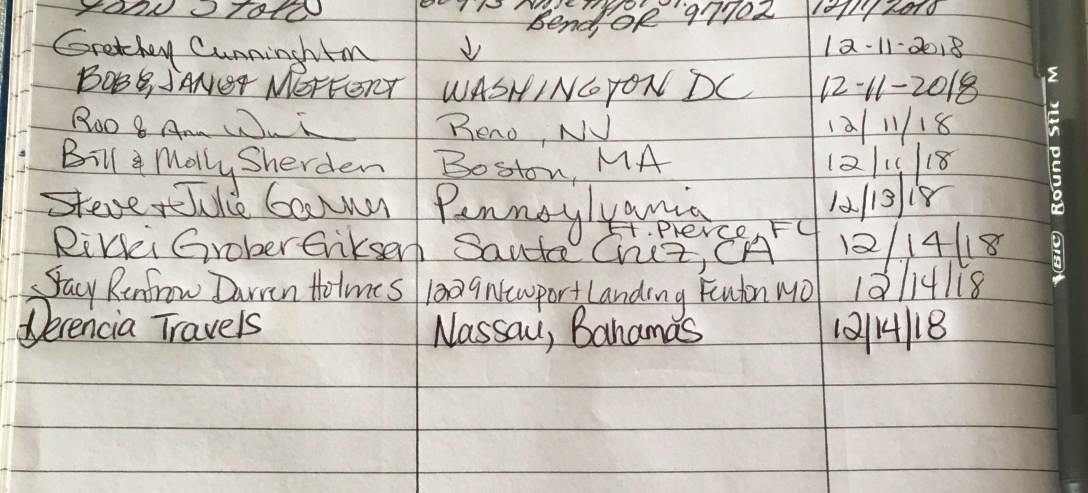 Bend, OR 97702 12/11/2018
Gretchen Cunninghton ↓ 12-11-2018
BOB & JANET MEFFERT WASHINGTON DC 12-11-2018
& Ann Reno, NV 12/11/18
Bill & Molly Sherden Boston, MA 12/11/18
Steve & Julie Pennsylvania 12/13/18
Ft. Pierce, FL
Rikki Grober Eriksen Santa Cruz, CA 12/14/18
Stacy Renfrow Darren Holmes 1229 Newport Landing Fenton MO 12/14/18
Derencia Travels Nassau, Bahamas 12/14/18
BIC Round Stic M